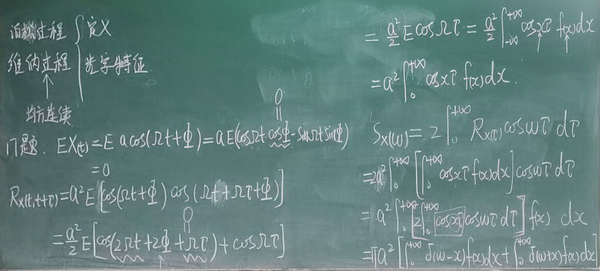 泊松过程 { 定义
维纳过程 { 数字特征
↑
均方连续
17题. EX(t) = E a cos(Ωt+Φ) = a E(cosΩt cosΦ - sinΩt sinΦ)
0
= 0
R_X(t,t+τ) = a² E[cos(Ωt+Φ) cos(Ωt+Ωτ+Φ)]
0
= a²/2 E[cos(2Ωt+2Φ+Ωτ) + cosΩτ]
= a²/2 E cosΩτ = a²/2 ∫_{-∞}^{+∞} cosxτ f(x)dx
= a² ∫_0^{+∞} cosxτ f(x)dx.
S_X(ω) = 2∫_0^{+∞} R_X(τ) cosωτ dτ
= 2a² ∫_0^{+∞} [∫_0^{+∞} cosxτ f(x)dx] cosωτ dτ
= a² ∫_0^{+∞} [2∫_0^{+∞} cosxτ cosωτ dτ] f(x) dx
= πa² [∫_0^{+∞} δ(ω-x)f(x)dx + ∫_0^{+∞} δ(ω+x)f(x)dx]